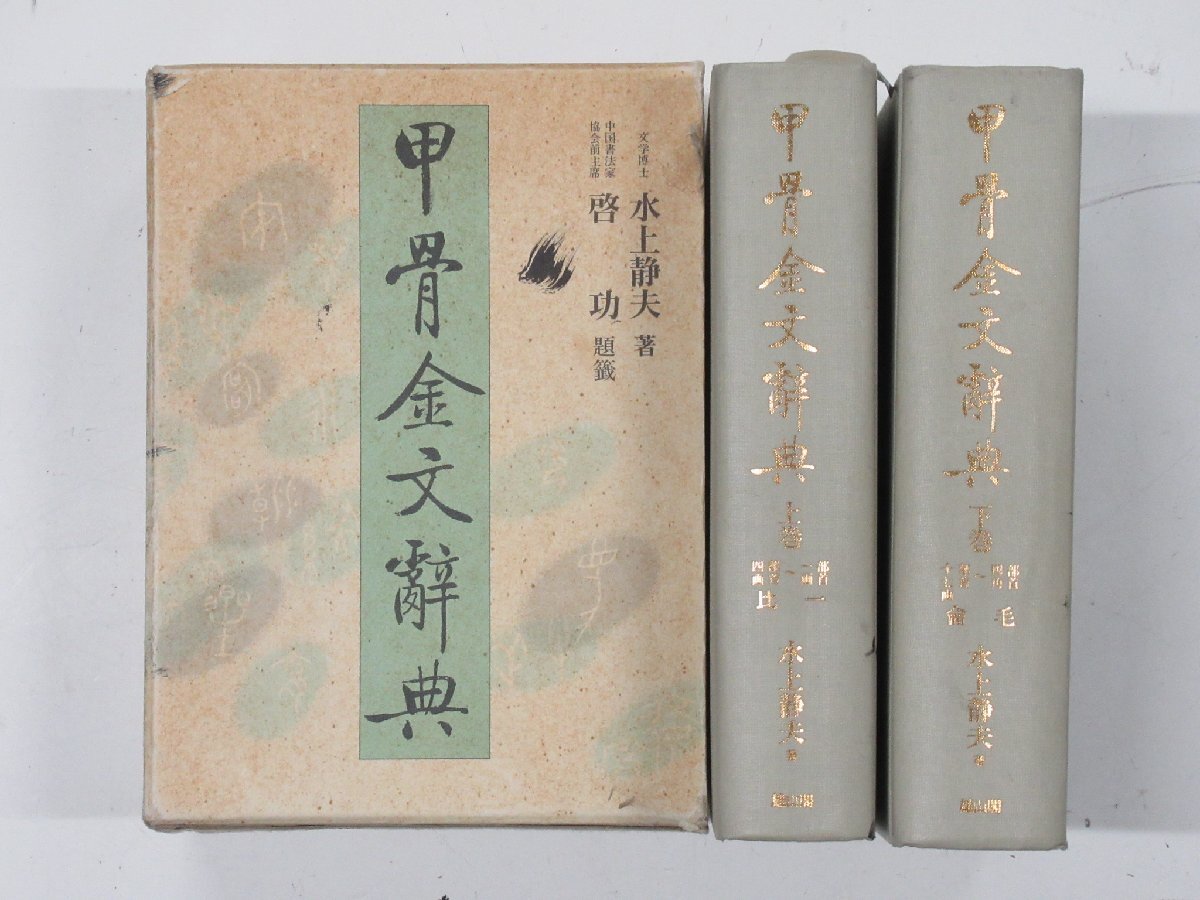 甲骨金文辭典
文学博士 水上静夫 著
中国書法家協会前主席 啓功 題籤
甲骨金文辭典 上巻
部首一画 一
~
部首四画 比
水上静夫 著
雄山閣
甲骨金文辭典 下巻
部首四画 毛
~
水上静夫 著
雄山閣